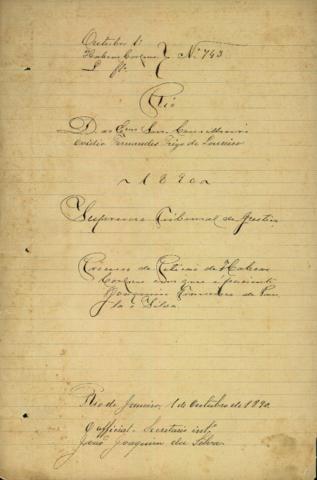 Outubro 1º
Habeas Corpus Nº 743
L fl.
Rio
D. ao Exmo Snr. Conselheiro
Ovidio Fernandes Trigo de Loureiro
~ 1890 ~
Supremo Tribunal de Justiça
de Petição de Habeas
Corpus em que é paciente
Joaquim de Pau
la e Silva.
Rio de Janeiro, 1 de Outubro de 1890.
O official. Secretario intº
João Joaquim da Silva